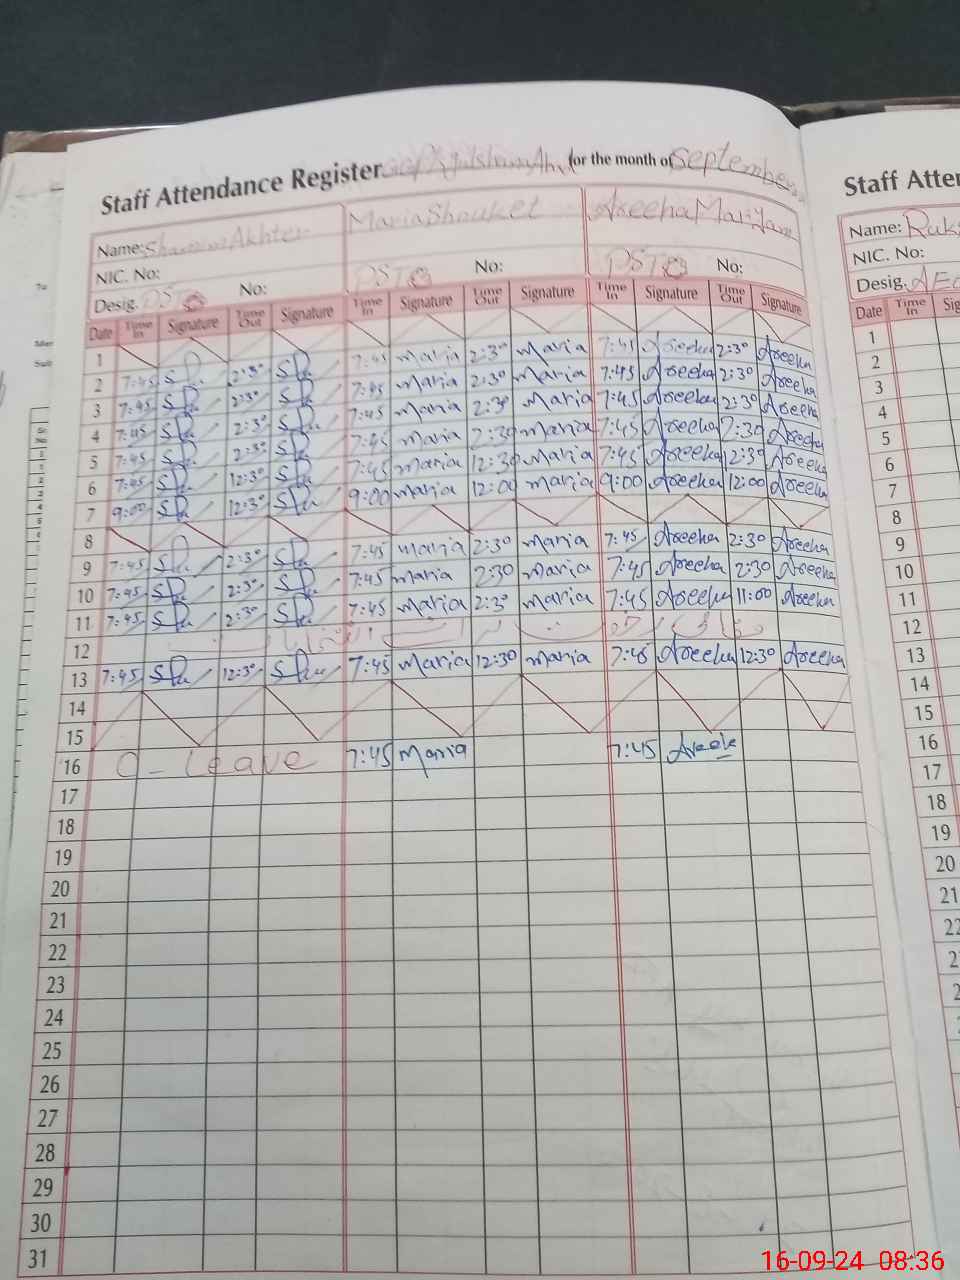 Staff Attendance Register for the month of September
Staff Atten
Name: Shamim Akhter Maria Shouket Areeha Mariyam
Name: Ruks
NIC. No:
NIC. No:
Desig. PST No: PST No: PST No:
Desig. AEO
Date Time In Signature Time Out Signature Time In Signature Time Out Signature Time In Signature Time Out Signature
Date Time In Sig
1
2 7:45 2:30 7:45 Maria 2:30 Maria 7:45 Areeha 2:30 Areeha
3 7:45 2:30 7:45 Maria 2:30 Maria 7:45 Areeha 2:30 Areeha
4 7:45 2:30 7:45 Maria 2:30 Maria 7:45 Areeha 2:30 Areeha
5 7:45 2:30 7:45 Maria 2:30 Maria 7:45 Areeha 2:30 Areeha
6 7:45 12:30 7:45 Maria 12:30 Maria 7:45 Areeha 12:30 Areeha
7 9:00 12:30 9:00 Maria 12:00 Maria 9:00 Areeha 12:00 Areeha
8
9 7:45 2:30 7:45 Maria 2:30 Maria 7:45 Areeha 2:30 Areeha
10 7:45 2:30 7:45 Maria 2:30 Maria 7:45 Areeha 2:30 Areeha
11 7:45 2:30 7:45 Maria 2:30 Maria 7:45 Areeha 11:00 Areeha
12
13 7:45 12:30 7:45 Maria 12:30 Maria 7:45 Areeha 12:30 Areeha
14
15
16 C - Leave 7:45 Maria 7:45 Areeha
17
18
19
20
21
22
23
24
25
26
27
28
29
30
31
1
2
3
4
5
6
7
8
9
10
11
12
13
14
15
16
17
18
19
20
21
22
16-09-24 08:36